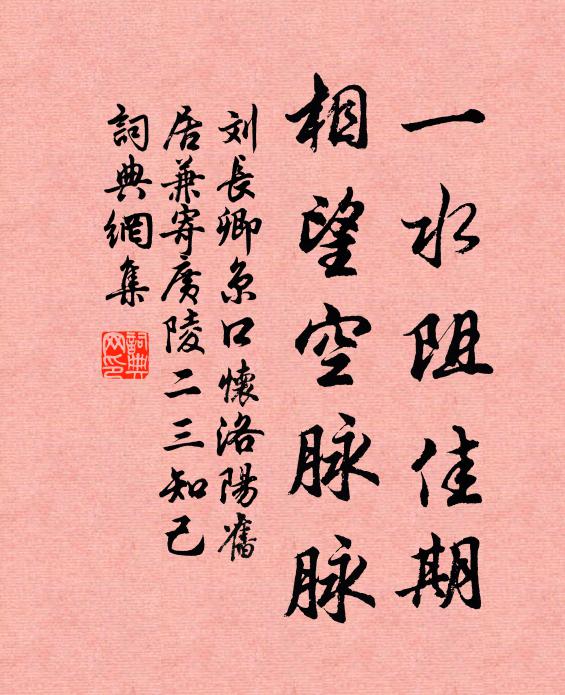 一水阻佳期
相望空脉脉
刘長卿京口懷洛陽舊
居兼寄廣陵二三知己
詞典網集
詞典
网印